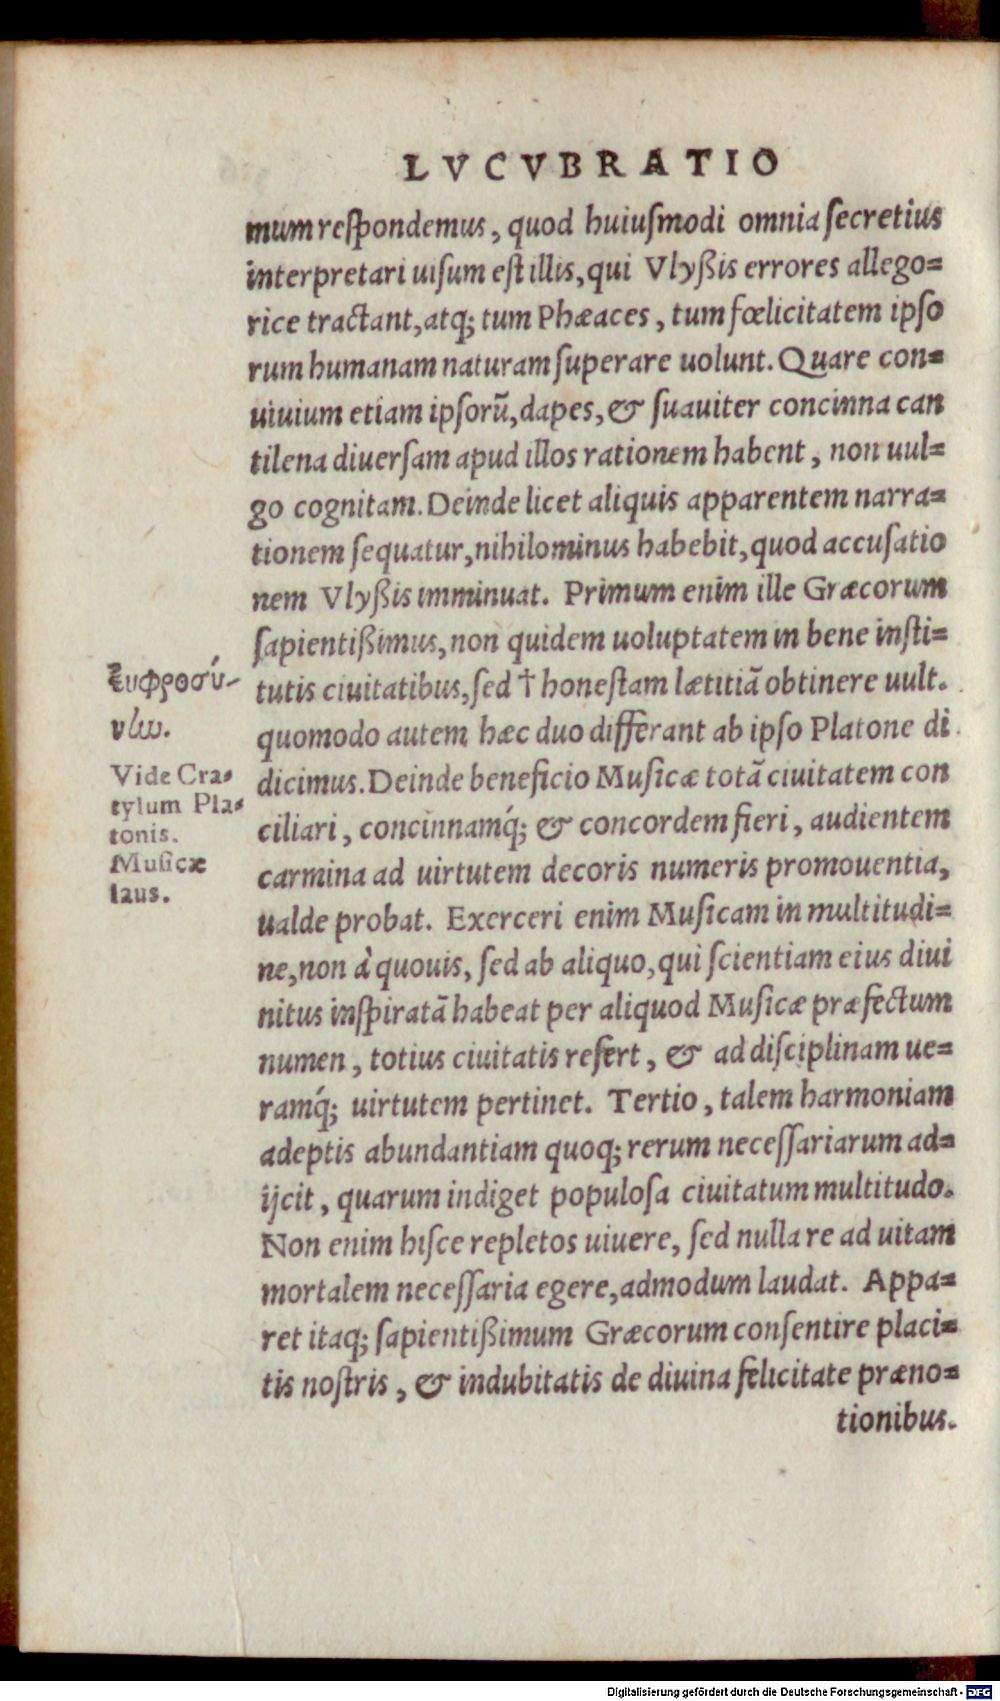 LVCVBRATIO
mum respondemus, quod huiusmodi omnia secretius
interpretari uisum est illis, qui Vlyßis errores allego=
rice tractant, atq; tum Phæaces, tum fœlicitatem ipso
rum humanam naturam superare uolunt. Quare con=
uiuium etiam ipsorū, dapes, & suauiter concinna can
tilena diuersam apud illos rationem habent, non uul=
go cognitam. Deinde licet aliquis apparentem narra=
tionem sequatur, nihilominus habebit, quod accusatio
nem Vlyßis imminuat. Primum enim ille Græcorum
sapientißimus, non quidem uoluptatem in bene insti=
tutis ciuitatibus, sed † honestam lætitiā obtinere uult.
quomodo autem hæc duo differant ab ipso Platone di
dicimus. Deinde beneficio Musicæ totā ciuitatem con
ciliari, concinnamq́; & concordem fieri, audientem
carmina ad uirtutem decoris numeris promouentia,
ualde probat. Exerceri enim Musicam in multitudi=
ne, non à quouis, sed ab aliquo, qui scientiam eius diui
nitus inspiratā habeat per aliquod Musicæ præfectum
numen, totius ciuitatis refert, & ad disciplinam ue=
ramq́; uirtutem pertinet. Tertio, talem harmoniam
adeptis abundantiam quoq; rerum necessariarum ad=
ijcit, quarum indiget populosa ciuitatum multitudo.
Non enim hisce repletos uiuere, sed nulla re ad uitam
mortalem necessaria egere, admodum laudat. Appa=
ret itaq; sapientißimum Græcorum consentire placi=
tis nostris, & indubitatis de diuina felicitate præno=
tionibus.
Ευφροσύ-
νlω.
Vide Cra=
tylum Pla=
tonis.
Musicæ
laus.
Digitalisierung gefördert durch die Deutsche Forschungsgemeinschaft - DFG